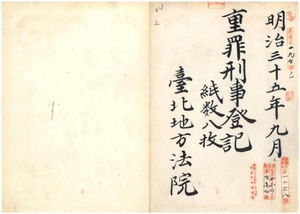 明治三十五年九月
重罪刑事登記
紙数八枚
臺北地方法院